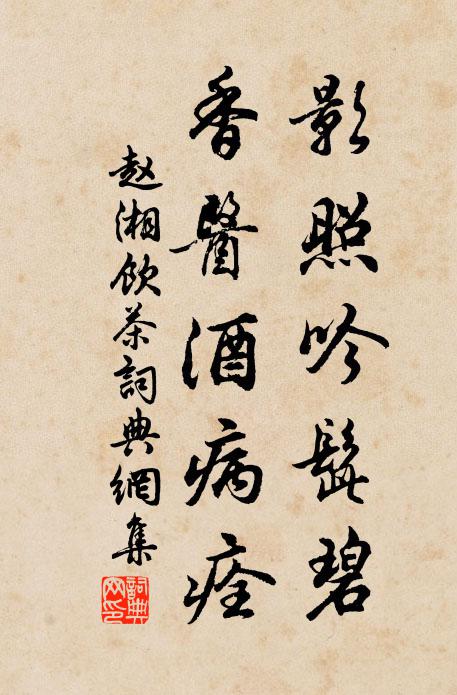 影照吟髭碧
香醫酒病痊
赵湘飲茶詞典網集
詞典网印